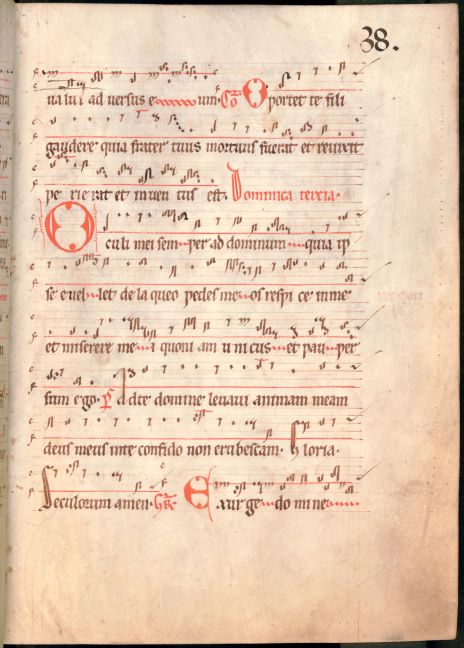 38.
ualui ad uersus e um. Co Oportet te fili
gaudere quia frater tuus mortuus fuerat et reuixit
perierat et inuen tus est. Dominica tercia.
Oculi mei sem per ad dominum quia ip
se euel let de laqueo pedes me os respi ce in me
et miserere me i quoni am unicus et pau per
sum ego. Ps Ad te domine leuaui animam meam
deus meus in te confido non erubescam. Gloria.
Seculorum amen. GR Exur ge do mine